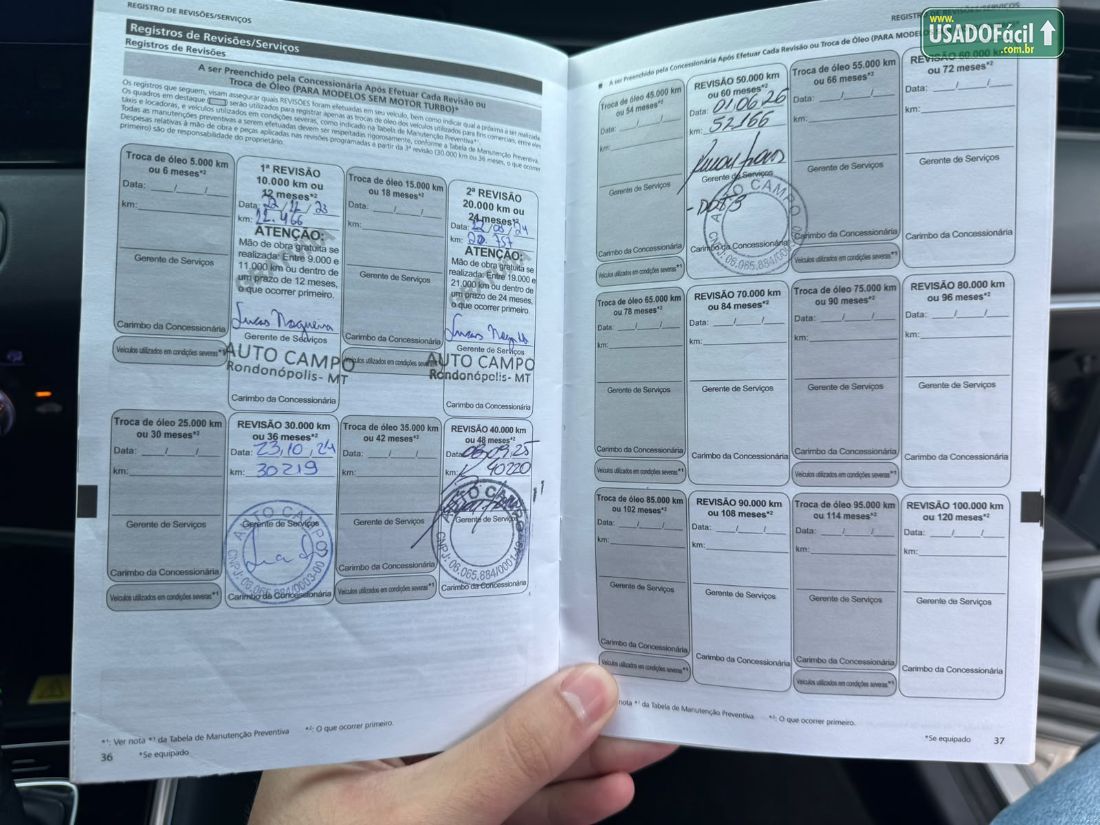 REGISTRO DE REVISÕES/SERVIÇOS
Registros de Revisões/Serviços
Registros de Revisões
A ser Preenchido pela Concessionária Após Efetuar Cada Revisão ou
Troca de Óleo (PARA MODELOS SEM MOTOR TURBO)*
Os registros que seguem, visam assegurar quais REVISÕES foram efetuadas em seu veículo, bem como indicar qual a próxima a ser realizada.
Os quadros em destaque ( ) serão utilizados para registrar apenas as trocas de óleo dos veículos utilizados para fins comerciais, entre eles
táxis e locadoras, e veículos utilizados em condições severas, como indicado na Tabela de Manutenção Preventiva*¹.
Todas as manutenções preventivas a serem efetuadas devem ser respeitadas rigorosamente, conforme a Tabela de Manutenção Preventiva.
Despesas relativas à mão de obra e peças aplicadas nas revisões programadas a partir da 3ª revisão (30.000 km ou 36 meses, o que ocorrer
primeiro) são de responsabilidade do proprietário.
Troca de óleo 5.000 km
ou 6 meses*²
Data: __/__/__
km:
Gerente de Serviços
Carimbo da Concessionária
Veículos utilizados em condições severas*¹
1ª REVISÃO
10.000 km ou
12 meses*²
Data: 22/11/23
km: 11.466
ATENÇÃO:
Mão de obra gratuita se
realizada: Entre 9.000 e
11.000 km ou dentro de
um prazo de 12 meses,
o que ocorrer primeiro.
Lucas Nogueira
Gerente de Serviços
AUTO CAMPO
Rondonópolis- MT
Carimbo da Concessionária
Troca de óleo 15.000 km
ou 18 meses*²
Data: __/__/__
km:
Gerente de Serviços
Carimbo da Concessionária
Veículos utilizados em condições severas*¹
2ª REVISÃO
20.000 km ou
24 meses*²
Data: 22/05/24
km: 20.757
ATENÇÃO:
Mão de obra gratuita se
realizada: Entre 19.000 e
21.000 km ou dentro de
um prazo de 24 meses,
o que ocorrer primeiro.
Gerente de Serviços
AUTO CAMPO
Rondonópolis- MT
Carimbo da Concessionária
Troca de óleo 25.000 km
ou 30 meses*²
Data: __/__/__
km:
Gerente de Serviços
Carimbo da Concessionária
Veículos utilizados em condições severas*¹
REVISÃO 30.000 km
ou 36 meses*²
Data: 23,10,24
km: 30219
Gerente de Serviços
AUTO CAMPO
CNPJ: 06.065.884/0003-00
Carimbo da Concessionária
Troca de óleo 35.000 km
ou 42 meses*²
Data: __/__/__
km:
Gerente de Serviços
Carimbo da Concessionária
Veículos utilizados em condições severas*¹
REVISÃO 40.000 km
ou 48 meses*²
Data: 08.09.25
km: 40220
AUTO CAMPO
Gerente de Serviços
CNPJ: 06.065.884/0001
Carimbo da Concessionária
*¹: Ver nota *¹ da Tabela de Manutenção Preventiva
*²: O que ocorrer primeiro.
36
*Se equipado
REGISTRO DE REVISÕES/SERVIÇOS
www.
USADOFácil
.com.br
A ser Preenchido pela Concessionária Após Efetuar Cada Revisão ou Troca de Óleo (PARA MODELOS
Troca de óleo 45.000 km
ou 54 meses*²
Data: __/__/__
km:
Gerente de Serviços
Carimbo da Concessionária
Veículos utilizados em condições severas*¹
REVISÃO 50.000 km
ou 60 meses*²
Data: 01.06.26
km: 52166
Gerente de Serviços
AUTO CAMPO
06.065.884/000
Carimbo da Concessionária
Troca de óleo 55.000 km
ou 66 meses*²
Data: __/__/__
km:
Gerente de Serviços
Carimbo da Concessionária
Veículos utilizados em condições severas*¹
REVISÃO 60.000 km
ou 72 meses*²
Data: __/__/__
km:
Gerente de Serviços
Carimbo da Concessionária
Troca de óleo 65.000 km
ou 78 meses*²
Data: __/__/__
km:
Gerente de Serviços
Carimbo da Concessionária
Veículos utilizados em condições severas*¹
REVISÃO 70.000 km
ou 84 meses*²
Data: __/__/__
km:
Gerente de Serviços
Carimbo da Concessionária
Troca de óleo 75.000 km
ou 90 meses*²
Data: __/__/__
km:
Gerente de Serviços
Carimbo da Concessionária
Veículos utilizados em condições severas*¹
REVISÃO 80.000 km
ou 96 meses*²
Data: __/__/__
km:
Gerente de Serviços
Carimbo da Concessionária
Troca de óleo 85.000 km
ou 102 meses*²
Data: __/__/__
km:
Gerente de Serviços
Carimbo da Concessionária
Veículos utilizados em condições severas*¹
REVISÃO 90.000 km
ou 108 meses*²
Data: __/__/__
km:
Gerente de Serviços
Carimbo da Concessionária
Troca de óleo 95.000 km
ou 114 meses*²
Data: __/__/__
km:
Gerente de Serviços
Carimbo da Concessionária
Veículos utilizados em condições severas*¹
REVISÃO 100.000 km
ou 120 meses*²
Data: __/__/__
km:
Gerente de Serviços
Carimbo da Concessionária
nota *¹ da Tabela de Manutenção Preventiva.
*²: O que ocorrer primeiro.
*Se equipado
37